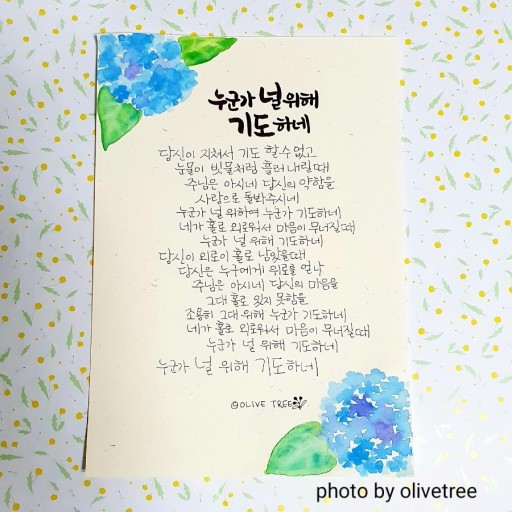 누군가 널 위해
기도하네
당신이 지쳐서 기도 할 수 없고
눈물이 빗물처럼 흘러 내릴때
주님은 아시네 당신의 약함을
사랑으로 돌봐주시네
누군가 널 위하여 누군가 기도하네
네가 홀로 외로워서 마음이 무너질때
누군가 널 위해 기도하네
당신이 외로이 홀로 남았을때
당신은 누구에게 위로를 얻나
주님은 아시네 당신의 마음을
그대 홀로 있지 못함을
조용히 그대 위해 누군가 기도하네
네가 홀로 외로워서 마음이 무너질때
누군가 널 위해 기도하네
누군가 널 위해 기도하네
©OLIVE TREE
photo by olivetree